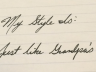 My Style Is:
Just like Grandpa's